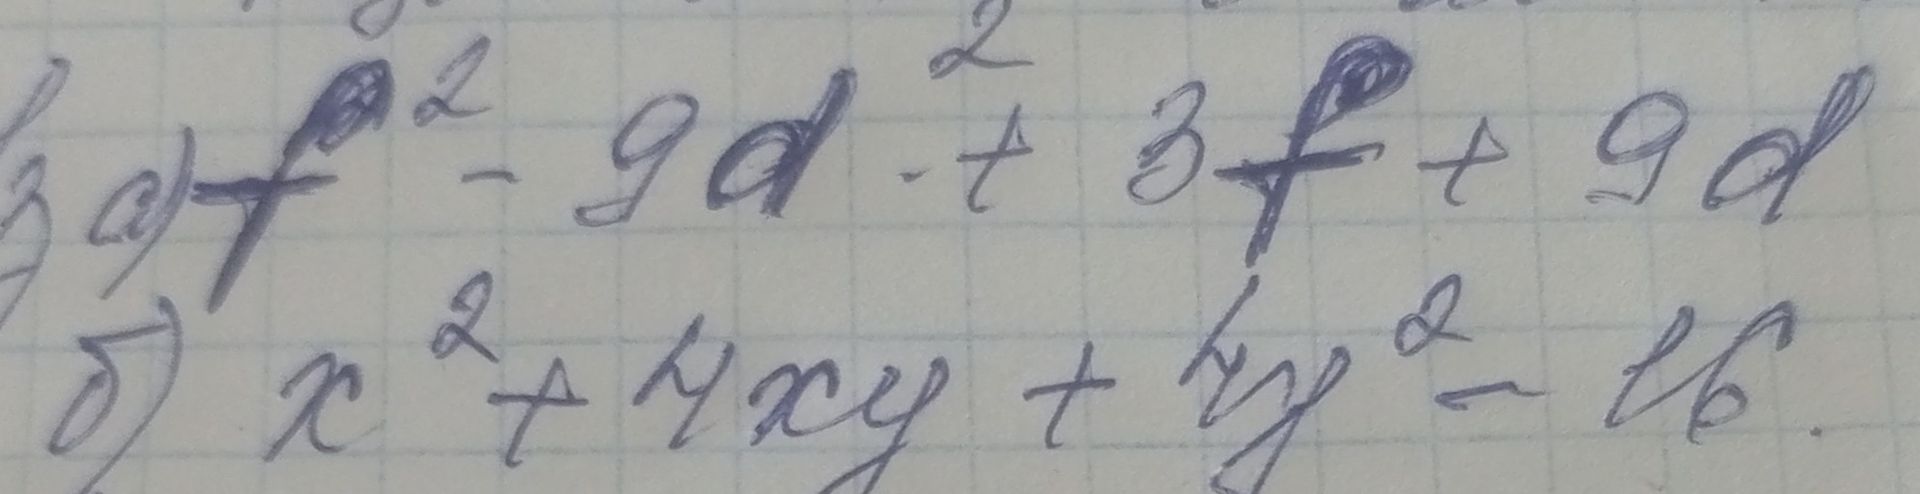 3 а) f² - 9d² + 3f + 9d
б) x² + 4xy + 4y² - 16.